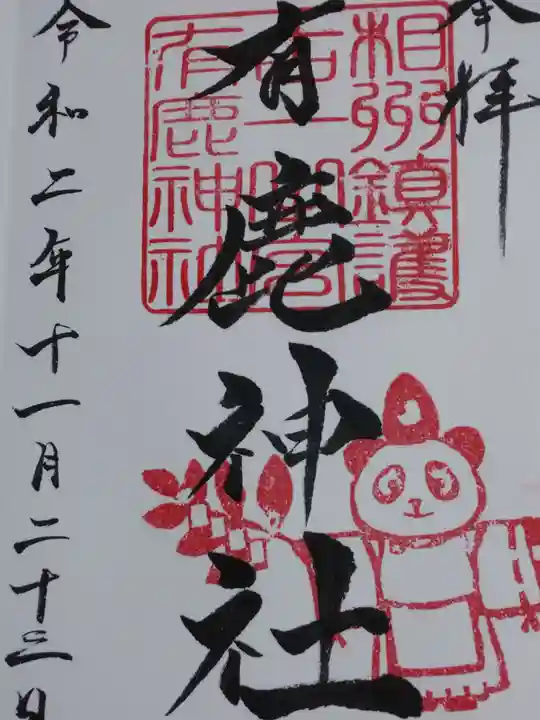 奉拝
有鹿神社
相州鎮護
有鹿神社
令和二年十一月二十三日